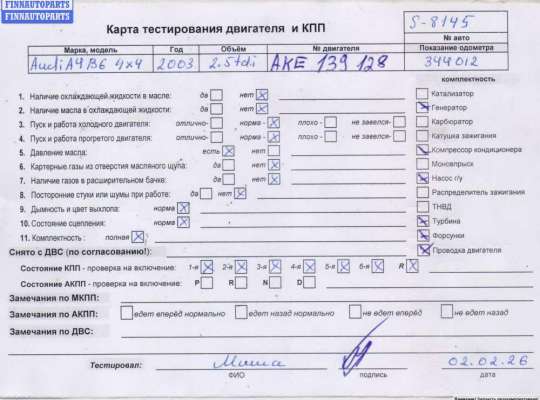 FINNAUTOPARTS
FINNAUTOPARTS
Карта тестирования двигателя и КПП
S-8145
№ авто
Марка, модель Год Объём № двигателя Показание одометра
Audi A4 B6 4x4 2003 2.5tdi AKE 139 128 344012
комплектность
1. Наличие охлаждающей жидкости в масле: да нет
2. Наличие масла в охлаждающей жидкости: да нет
3. Пуск и работа холодного двигателя: отлично- норма - плохо - не завелся-
4. Пуск и работа прогретого двигателя: отлично- норма - плохо - не завелся-
5. Давление масла: есть нет
6. Картерные газы из отверстия масляного щупа: да нет
7. Наличие газов в расширительном бачке: да нет
8. Посторонние стуки или шумы при работе: да нет
9. Дымность и цвет выхлопа: норма
10. Состояние сцепления: норма
11. Комплектность : полная
Катализатор
Генератор
Карбюратор
Катушка зажигания
Компрессор кондиционера
Моновпрыск
Насос г/у
Распределитель зажигания
ТНВД
Турбина
Форсунки
Проводка двигателя
Снято с ДВС (по согласованию!):
Состояние КПП - проверка на включение: 1-я 2-я 3-я 4-я 5-я 6-я R
Состояние АКПП - проверка на включение: P R N D
Замечания по МКПП:
Замечания по АКПП: едет вперёд нормально едет назад нормально не едет вперёд не едет назад
Замечания по ДВС:
Тестировал: Миша 02.02.26
ФИО подпись дата